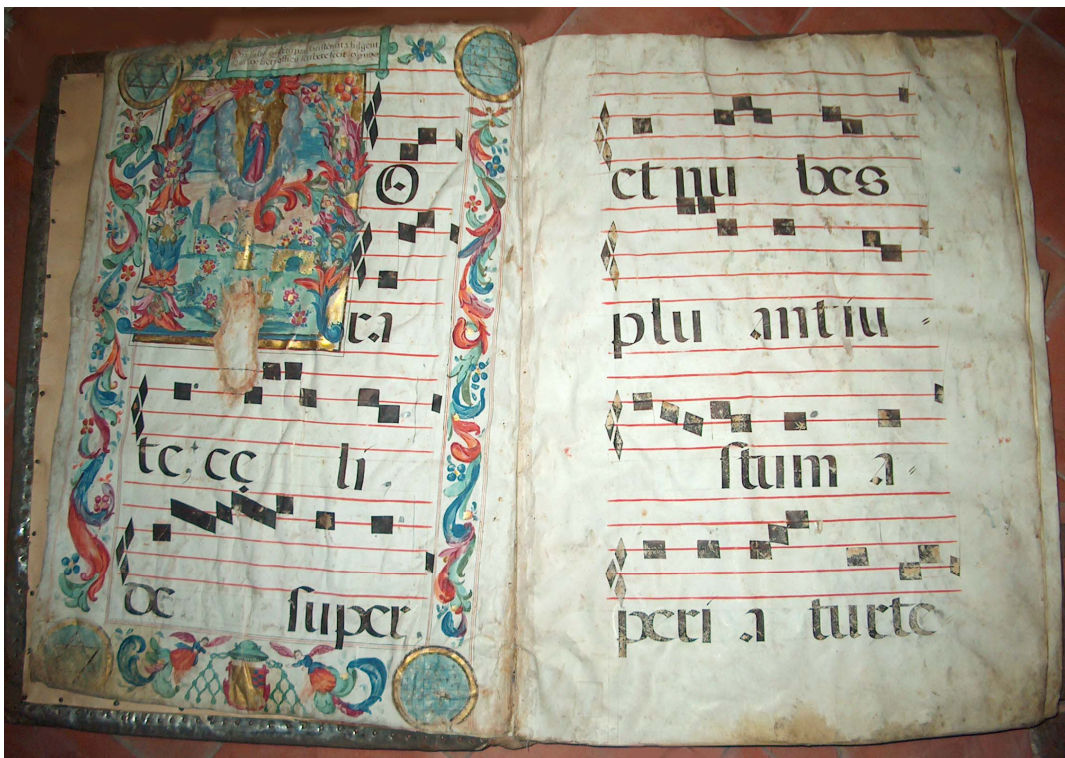 O
ra
te; cę li
de ſuper.
et nu bes
plu antiu =
ſtum a =
peri a turte